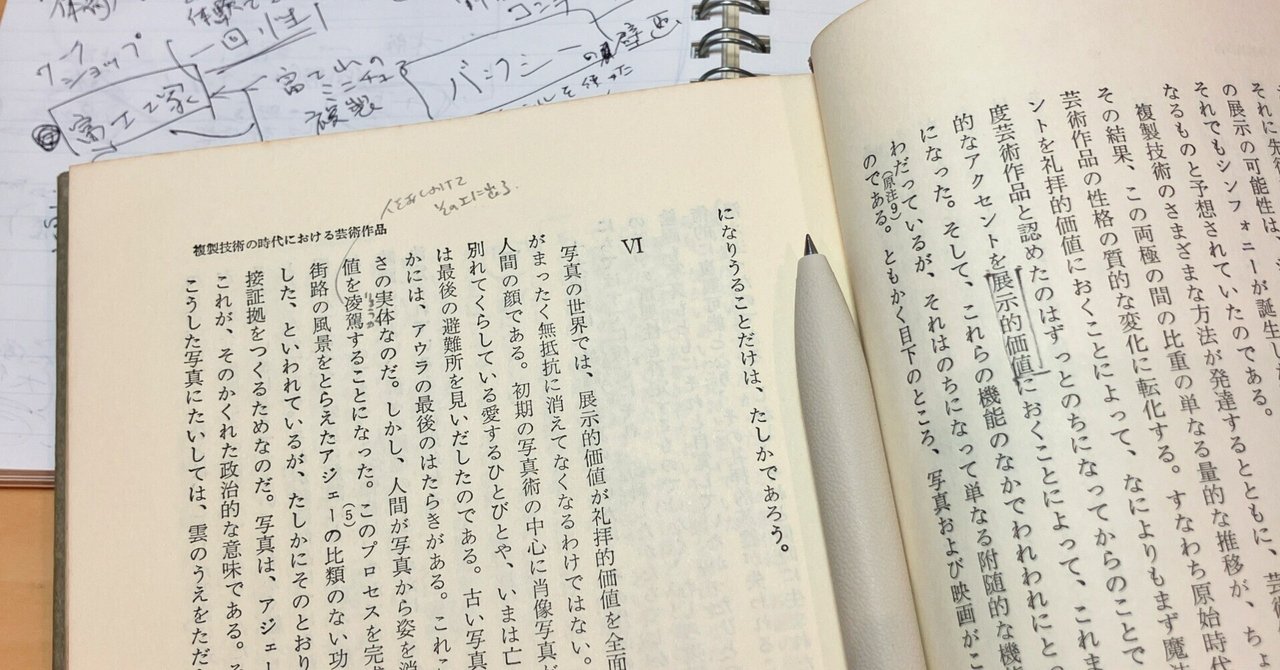 それに先
の展示の可能性は、
それでもシンフォニーが誕生し
なるものと予想されていたのである。
複製技術のさまざまな方法が発達するとともに、芸
その結果、この両極の間の比重の単なる量的な推移が、ちょ
芸術作品の性格の質的な変化に転化する。すなわち原始時代
ントを礼拝的価値におくことによって、なによりもまず魔
度芸術作品と認めたのはずっとのちになってからのことで
的なアクセントを展示的価値におくことによって、これま
になった。そして、これらの機能のなかでわれわれにと
わだっているが、それはのちになって単なる附随的な機
(原注9)
のである。ともかく目下のところ、写真および映画がこ
になりうることだけは、たしかであろう。
VI
写真の世界では、展示的価値が礼拝的価値を全面
がまったく無抵抗に消えてなくなるわけではない。
人間の顔である。初期の写真術の中心に肖像写真が
別れてくらしている愛するひとびとや、いまは亡
は最後の避難所を見いだしたのである。古い写真
かには、アウラの最後のはたらきがある。これこ
さの実体なのだ。しかし、人間が写真から姿を消
値を凌駕することになった。このプロセスを完
りょうが
街路の風景をとらえたアジェーの比類のない功
(5)
した、といわれているが、たしかにそのとおり
接証拠をつくるためなのだ。写真は、アジェー
これが、そのかくれた政治的な意味である。そ
こうした写真にたいしては、雲のうえをただ
複製技術の時代における芸術作品
バンクシーの壁画
富士山の
ミニチュ
複製
一回性
ワーク
ショップ
富士塚